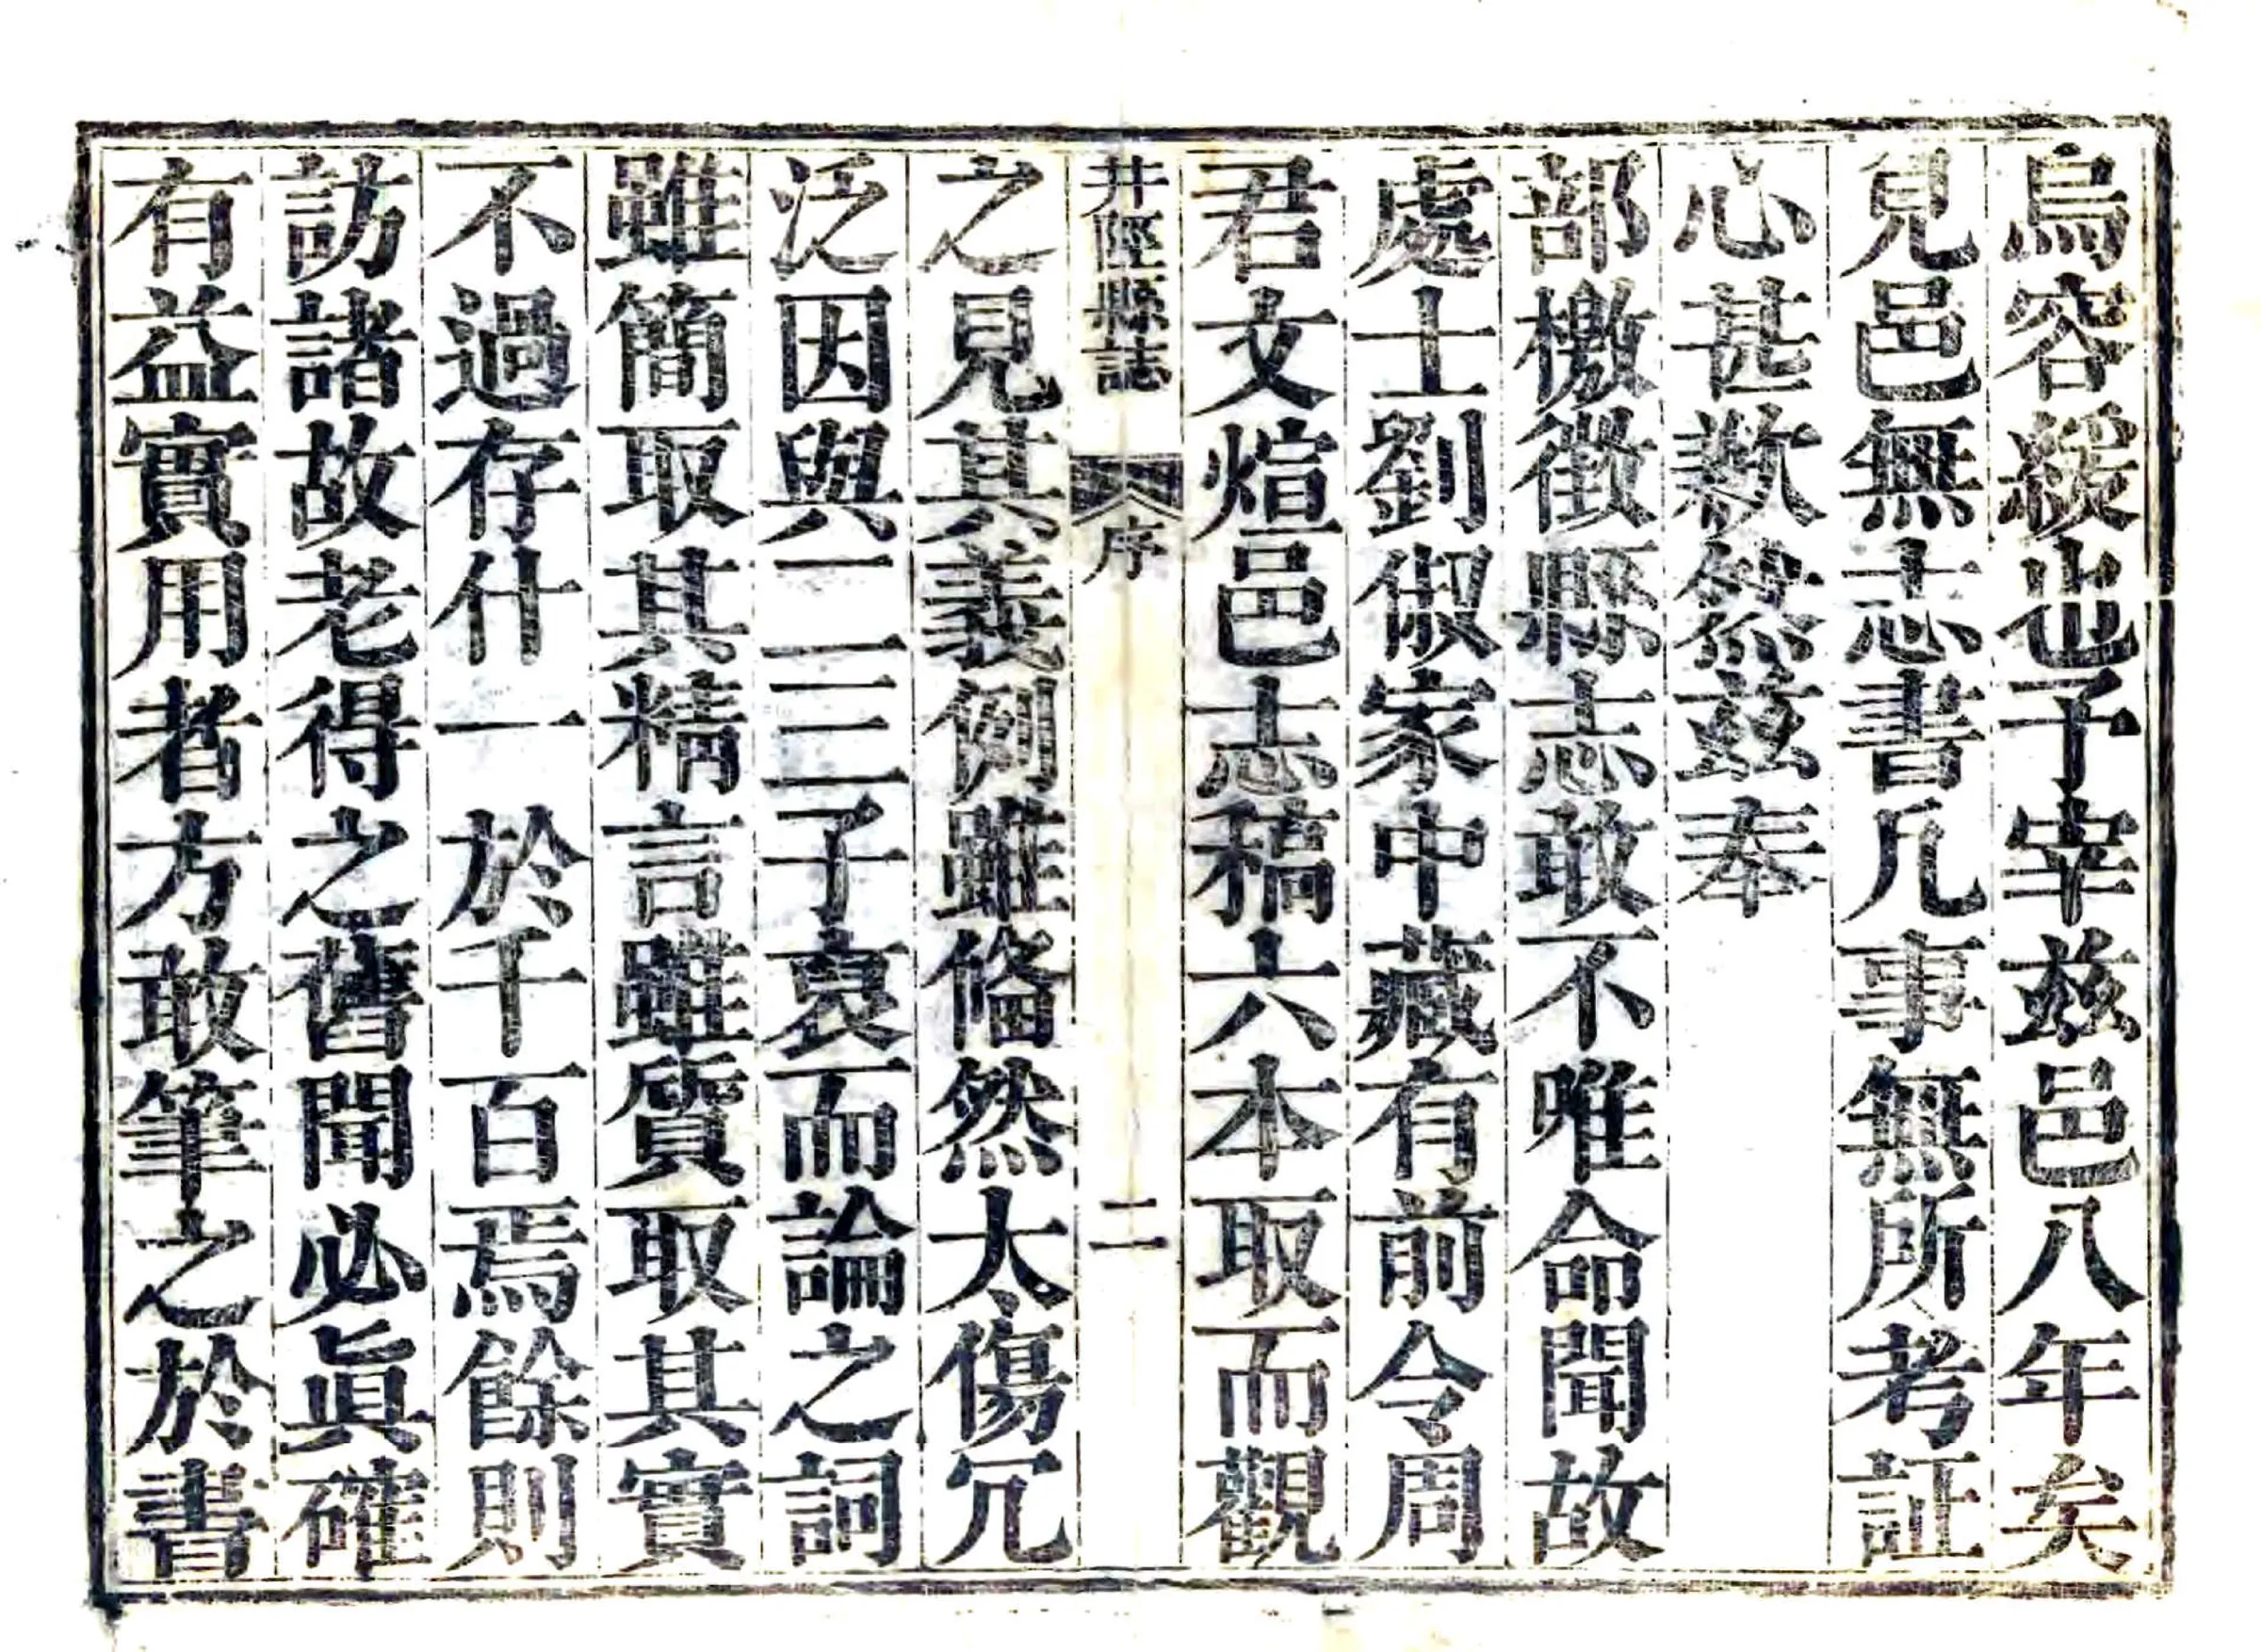 烏容緩也予宰兹邑八年矣
見邑無志書凡事無所考証
心甚歉然兹奉
部檄徵縣志敢不唯命聞故
處士劉俶家中藏有前令周
君文煊邑志稿六本取而觀
井陘縣誌
序
二
之見其義例雖偹然太傷冗
泛因與二三子裒而論之詞
雖簡取其精言雖質取其實
不過存什一於千百焉餘則
訪諸故老得之舊聞必眞確
有益實用者方敢筆之於書